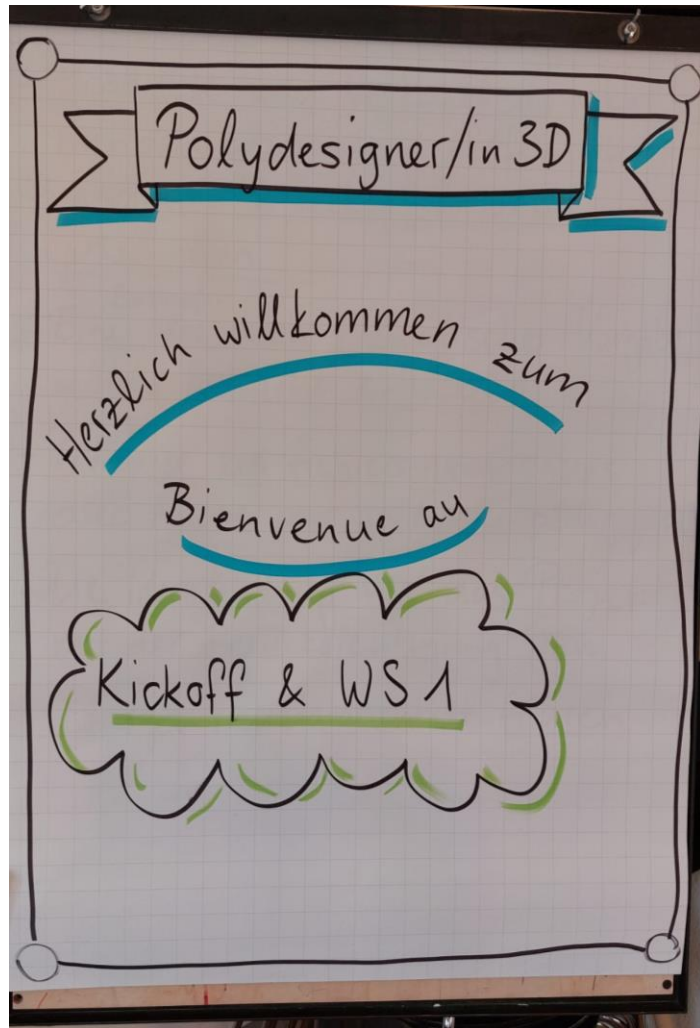 Polydesigner/in 3D
Herzlich willkommen zum
Bienvenue au
Kickoff & WS 1